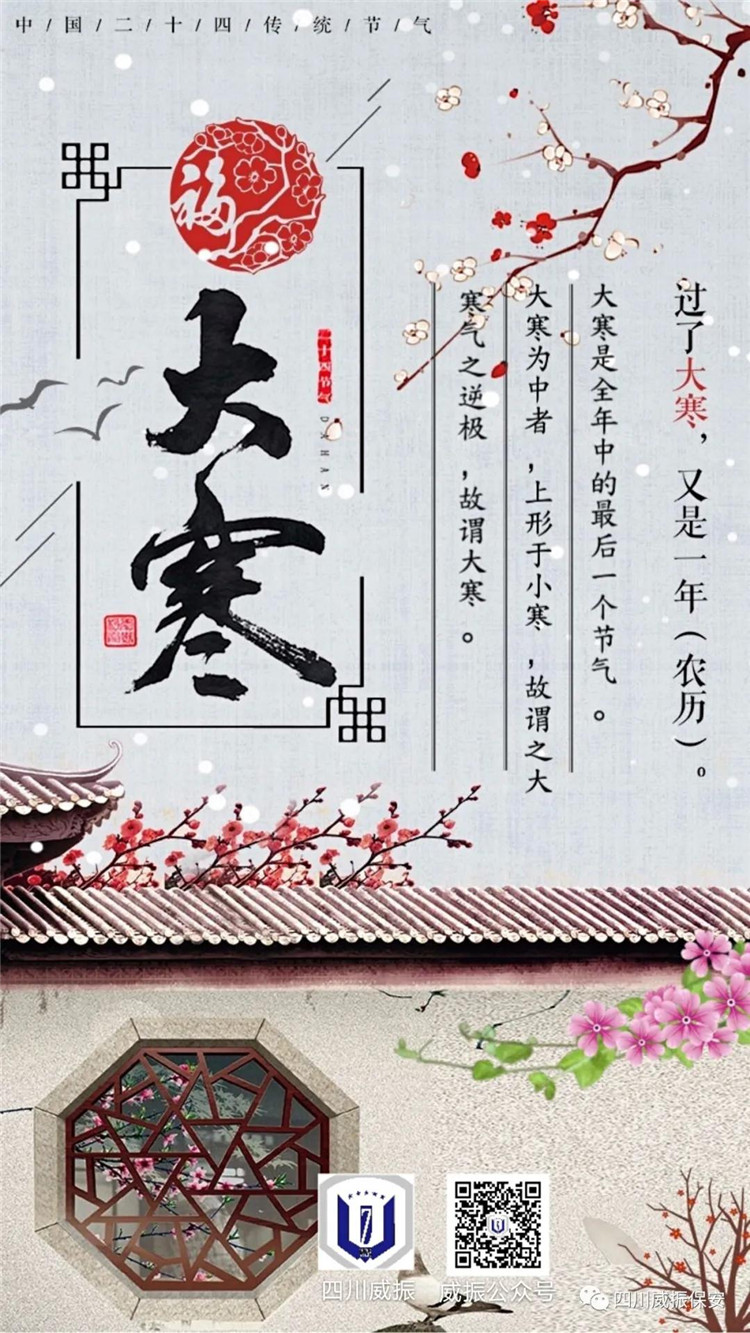 中/国/二/十/四/传/统/节/气
福
大寒
二十四节气
DAHAN
过了大寒，又是一年（农历）。
大寒是全年中的最后一个节气。
大寒为中者，上形于小寒，故谓之大
寒气之逆极，故谓大寒。
四川威振
威振公众号
四川威振保安